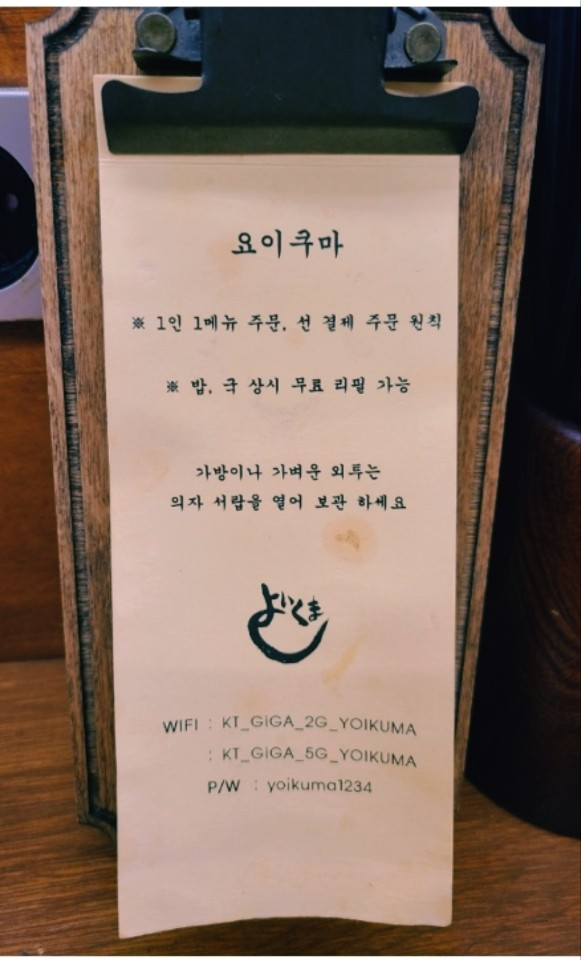 요이쿠마
※ 1인 1메뉴 주문, 선 결제 주문 원칙
※ 밥, 국 상시 무료 리필 가능
가방이나 가벼운 외투는
의자 서랍을 열어 보관 하세요
よいくま
WIFI : KT_GiGA_2G_YOIKUMA
: KT_GiGA_5G_YOIKUMA
P/W : yoikuma1234